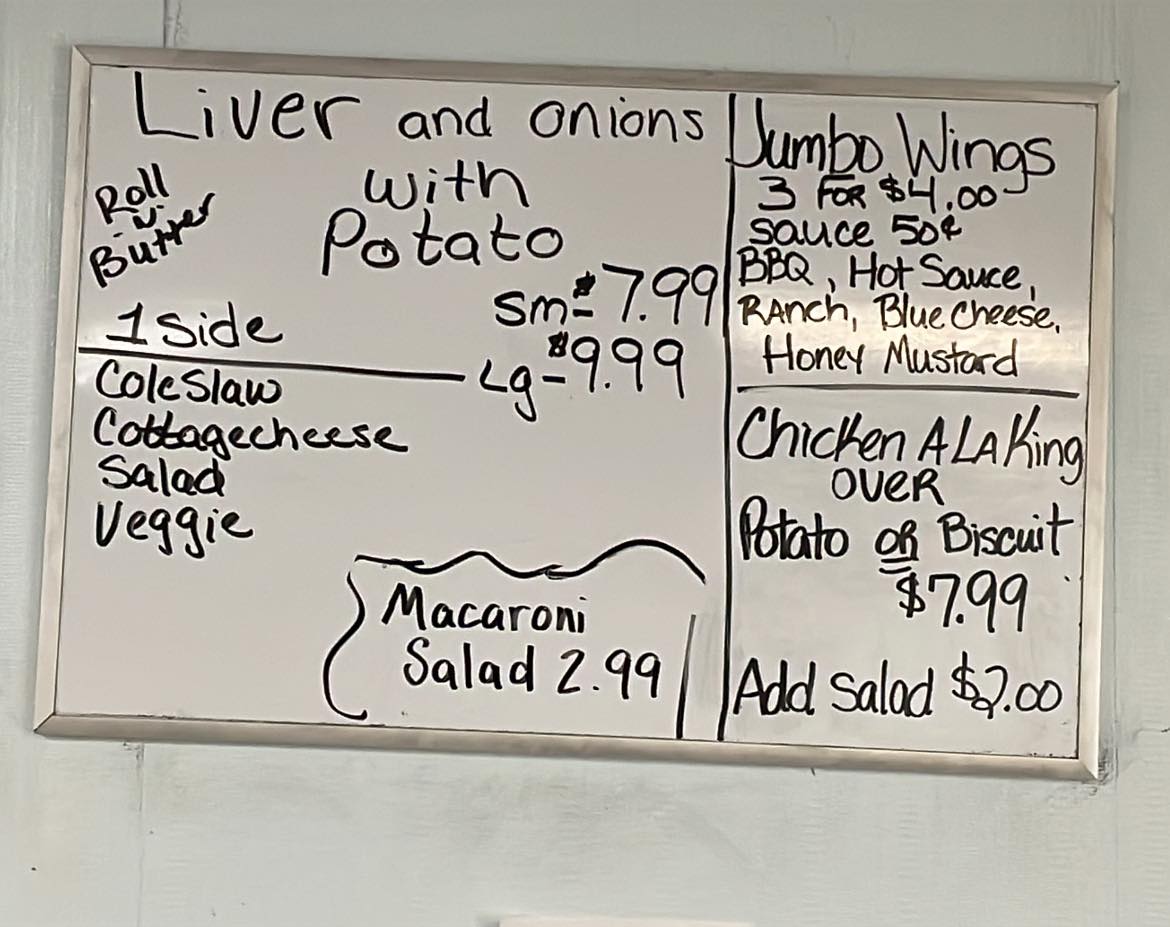 Liver and onions
with
Potato
Roll
n
Butter
Sm-$7.99
Lg-$9.99
1 Side
Coleslaw
Cottagecheese
Salad
Veggie
Macaroni
Salad 2.99
Jumbo Wings
3 FOR $4.00
sauce 50¢
BBQ, Hot Sauce,
RAnch, Blue Cheese,
Honey Mustard
Chicken A LA King
OVER
Potato OR Biscuit
$7.99
Add salad $2.00